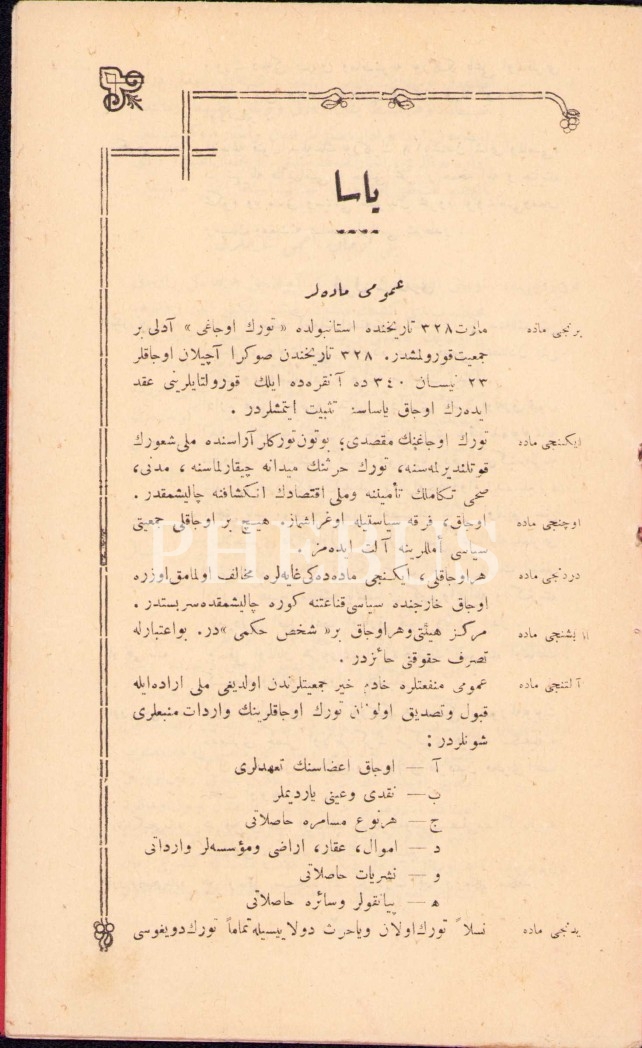 ياسا
عمومى ماده‌لر
برنجى ماده مارت ٣٢٨ تاريخنده استانبولده « تورك اوجاغى » آدلى بر
جمعيت قورولمشدر. ٣٢٨ تاريخندن صوكرا آچيلان اوجاقلر
٢٣ نيسان ٣٤٠ ده آنقره‌ده ايلك قورولتايلرينى عقد
ايده‌رك اوجاق ياساسنى تثبيت ايتمشلردر .
ايكنجى ماده تورك اوجاغنك مقصدى؛ بوتون توركلر آراسنده ملى شعورك
قوتلنديرلمه‌سنه، تورك حرثنك ميدانه چيقارلماسنه ، مدنى،
صحى تكاملك تأميننه وملى اقتصادك انكشافنه چاليشمقدر .
اوچنجى ماده اوجاق، فرقه سياستيله اوغراشماز. هيچ بر اوجاقلى جمعيتى
سياسى أمللرينه آلت ايده‌مز .
دردنجى ماده هر اوجاقلى ، ايكنجى ماده‌ده‌كى غايه‌لره مخالف اولمامق اوزره
اوجاق خارجنده سياسى قناعتنه كوره چاليشمقده سربستدر .
بشنجى ماده مركز هيئتى وهر اوجاق بر « شخص حكمى » در. بو اعتبارله
تصرف حقوقنى حائزدر .
آلتنجى ماده عمومى منفعتلره خادم خير جمعيتلرندن اولديغى ملى اراده ايله
قبول وتصديق اولونان تورك اوجاقلرينك واردات منبعلرى
شونلردر :
آ — اوجاق اعضاسنك تعهدلرى
ب — نقدى وعينى يارديملر
ج — هرنوع مسامره حاصلاتى
د — اموال، عقار، اراضى ومؤسسه‌لر وارداتى
و — نشريات حاصلاتى
ه — پيانقولر وسائره حاصلاتى
يدنجى ماده نسلاً تورك اولان وياحرث دولاييسيله تماماً تورك دويغوسى
PHEBUS